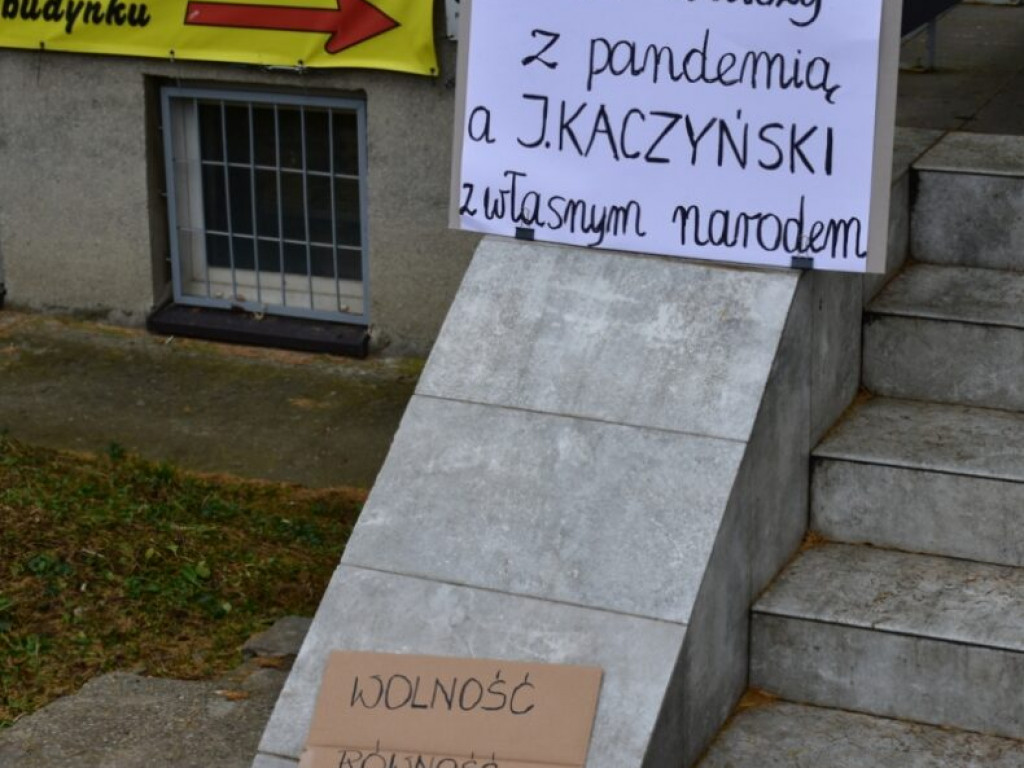 budynku
z pandemią
a J.KACZYŃSKI
z własnym narodem
WOLNOŚĆ
RÓWNOŚĆ